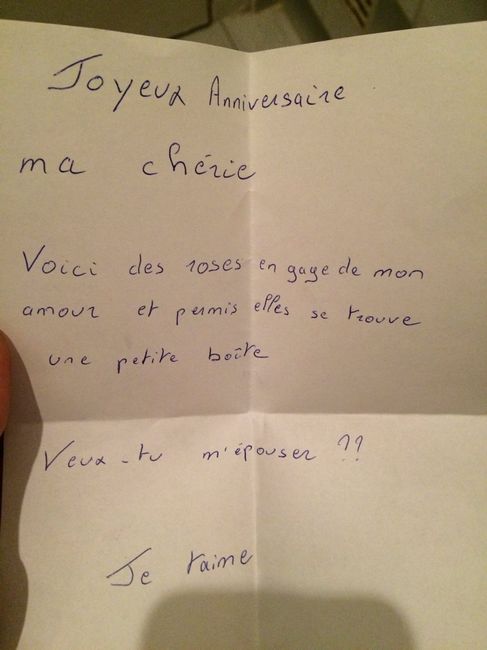 Joyeux Anniversaire
ma chérie
Voici des roses en gage de mon
amour et permis elles se trouve
une petite boîte
Veux-tu m'épouser ??
Je t'aime